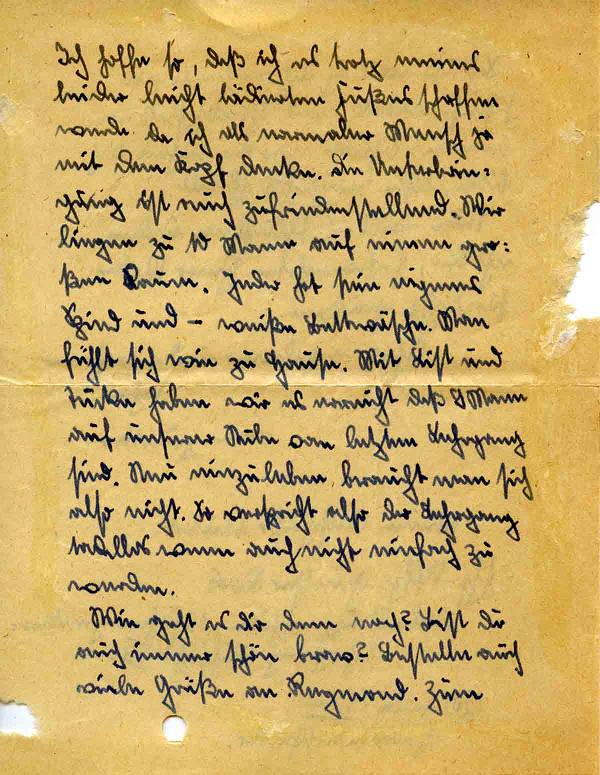 Ich hoffe so, daß ich es trotz meines
leider leicht lädierten Fußes schaffen
werde da ich als normaler Mensch ja
mit dem Kopf denke. Die Unterbrin=
gung ist auch zufriedenstellend. Wir
liegen zu 10 Mann auf einem gro=
ßen Raum. Jeder hat sein eigenes
Spind und – weiße Bettwäsche. Man
fühlt sich wie zu Hause. Mit List und
Tücke haben wir es erreicht daß 8 Mann
auf unserer Stube vom letzten Lehrgang
sind. Neu einzuleben braucht man sich
also nicht. So verspricht also der Lehrgang
tadellos wenn auch nicht einfach zu
werden.
Wie geht es dir denn noch? Bist du
auch immer schön brav? Bestelle auch
viele Grüße an Raymond. Zum